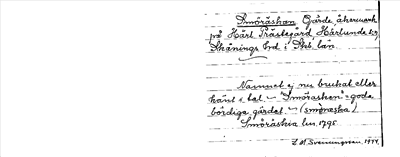 Smöräskan Gärde, åkermark
på Härl. Prästegård Härlunda sn
Skånings hd i Skb. län.
Namnet ej nu brukat eller
känt. bet. "Smörasken" = goda
bördiga gärdet. (smöräska)
Smöräskia lm. 1795.
Svenungsson, 1944.